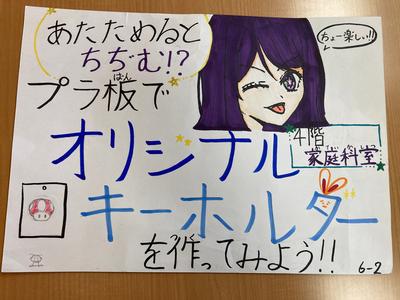 あたためると
ちぢむ!?
ちょー楽しい!!
プラ板で
ばん
オリジナル
4階
家庭科室
キーホルダー
を作ってみよう!!
6-2